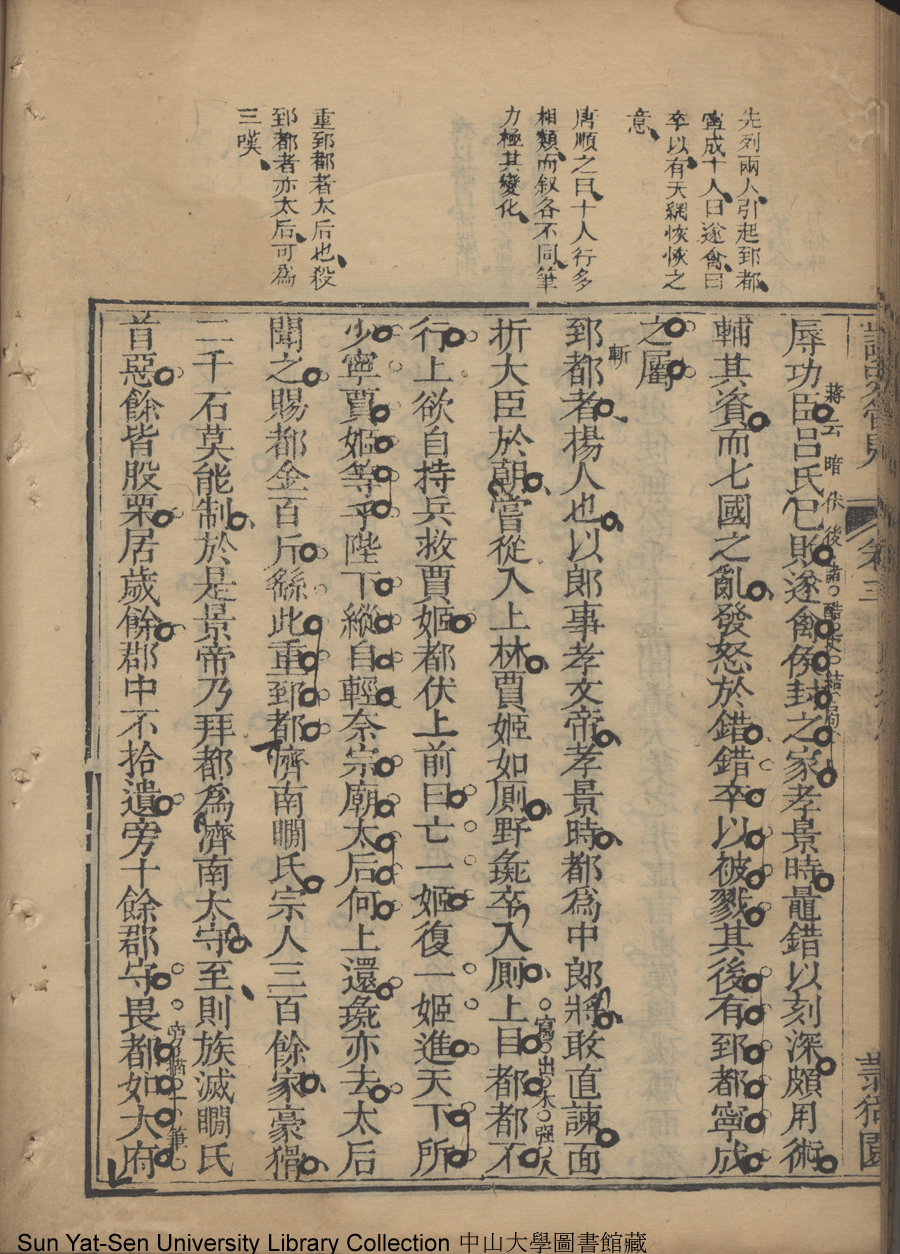 先列兩人引起郅都
甯成十人曰遂禽曰
卒以有天網恢恢之
意
唐順之曰十人行多
相類而叙各不同筆
力極其變化
重郅都者太后也殺
郅都者亦太后可為
三嘆
卷三
辱功臣呂氏已敗遂禽侯封之家孝景時鼂錯以刻深頗用術
蔣云暗伏後諸酷吏結局
輔其資而七國之亂發怒於錯錯卒以被戮其後有郅都寧成
之屬
郅都者楊人也以郎事孝文帝孝景時都為中郎將敢直諫面
斬
折大臣於朝嘗從入上林賈姬如厠野彘卒入厠上目都都不
寫出木強人
行上欲自持兵救賈姬都伏上前曰亡一姬復一姬進天下所
少寧賈姬等乎陛下縱自輕奈宗廟太后何上還彘亦去太后
聞之賜都金百斤繇此重郅都濟南瞯氏宗人三百餘家豪猾
二千石莫能制於是景帝乃拜都為濟南太守至則族滅瞯氏
首惡餘皆股栗居歲餘郡中不拾遺旁十餘郡守畏都如大府
Sun Yat-Sen University Library Collection 中山大學圖書館藏